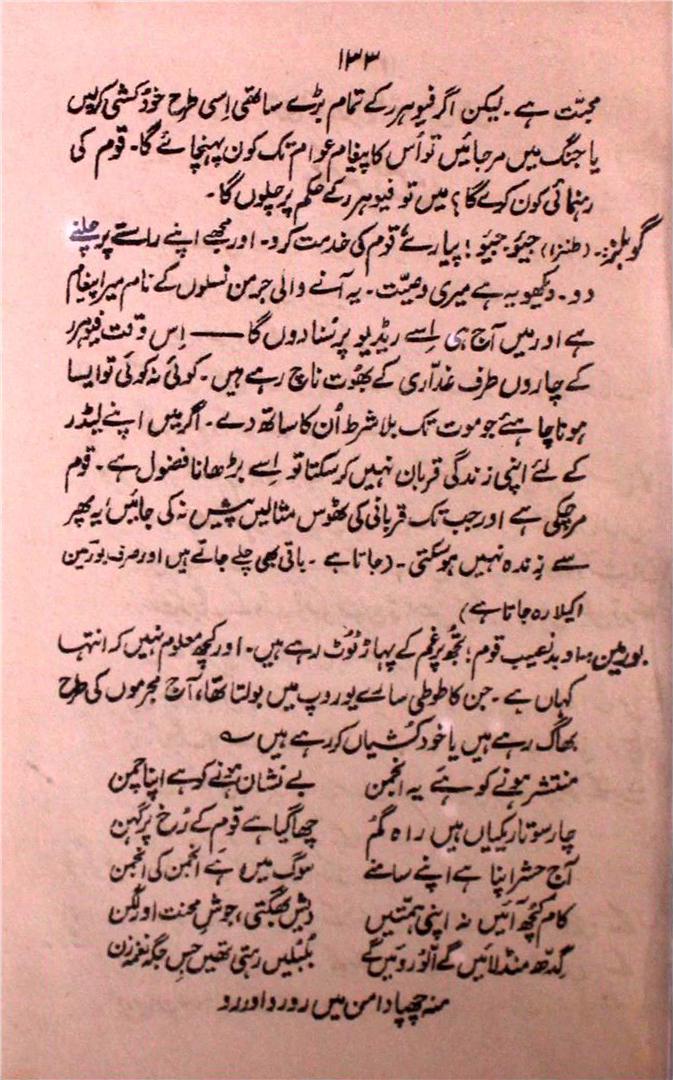 ۱۳۳
محبّت ہے۔ لیکن اگر فیوہرر کے تمام بڑے ساتھی اِسی طرح خودکشی کرلیں
یا جنگ میں مرجائیں تو اُس کا پیغام عوام تک کون پہنچائے گا۔ قوم کی
رہنمائی کون کرے گا؟ میں تو فیوہرر کے حکم پر چلوں گا۔
گوبلز:۔ (طنزاً) جیئو جیئو! پیارے، قوم کی خدمت کرو۔ اور مجھے اپنے راستے پر چلنے
دو۔ دیکھو یہ ہے میری وصیّت۔ یہ آنے والی جرمن نسلوں کے نام میرا پیغام
ہے اور میں آج ہی اِسے ریڈیو پر سُنا دوں گا —— اِس وقت فیوہرر
کے چاروں طرف غدّاری کے بھُوت ناچ رہے ہیں۔ کوئی نہ کوئی تو ایسا
ہونا چاہئے جو موت تک بلا شرط اُن کا ساتھ دے۔ اگر میں اپنے لیڈر
کے لئے اپنی زندگی قربان نہیں کرسکتا تو اِسے بڑھانا فضول ہے۔ قوم
مرچکی ہے اور جب تک قربانی کی ٹھوس مثالیں پیش نہ کی جائیں، یہ پھر
سے زندہ نہیں ہوسکتی۔ (جاتا ہے۔ باقی بھی چلے جاتے ہیں اور صرف بورمین
اکیلا رہ جاتا ہے)
بورمین:۔ او بدنصیب قوم! تجھ پر غم کے پہاڑ ٹوٹ رہے ہیں۔ اور کچھ معلوم نہیں کہ انتہا
کہاں ہے۔ جن کا طوطی سارے یوروپ میں بولتا تھا، آج مجرموں کی طرح
بھاگ رہے ہیں یا خودکشیاں کر رہے ہیں ؎
منتشر ہونے کو ہے یہ انجمن بے نشان ہونے کو ہے اپنا چمن
چار سُو تاریکیاں ہیں راہ گم چھا گیا ہے قوم کے رُخ پر گہن
آج حشر اپنا ہے اپنے سامنے سوگ میں ہے انجمن کی انجمن
کام کچھ آئیں نہ اپنی ہمتیں دیش بھگتی، جوشِ محنت اور لگن
گِدھ منڈلائیں گے اُلّو روئیں گے بُلبلیں رہتی تھیں جس جگہ نغمہ زن
منہ چھپا دامن میں رو رو اور رو